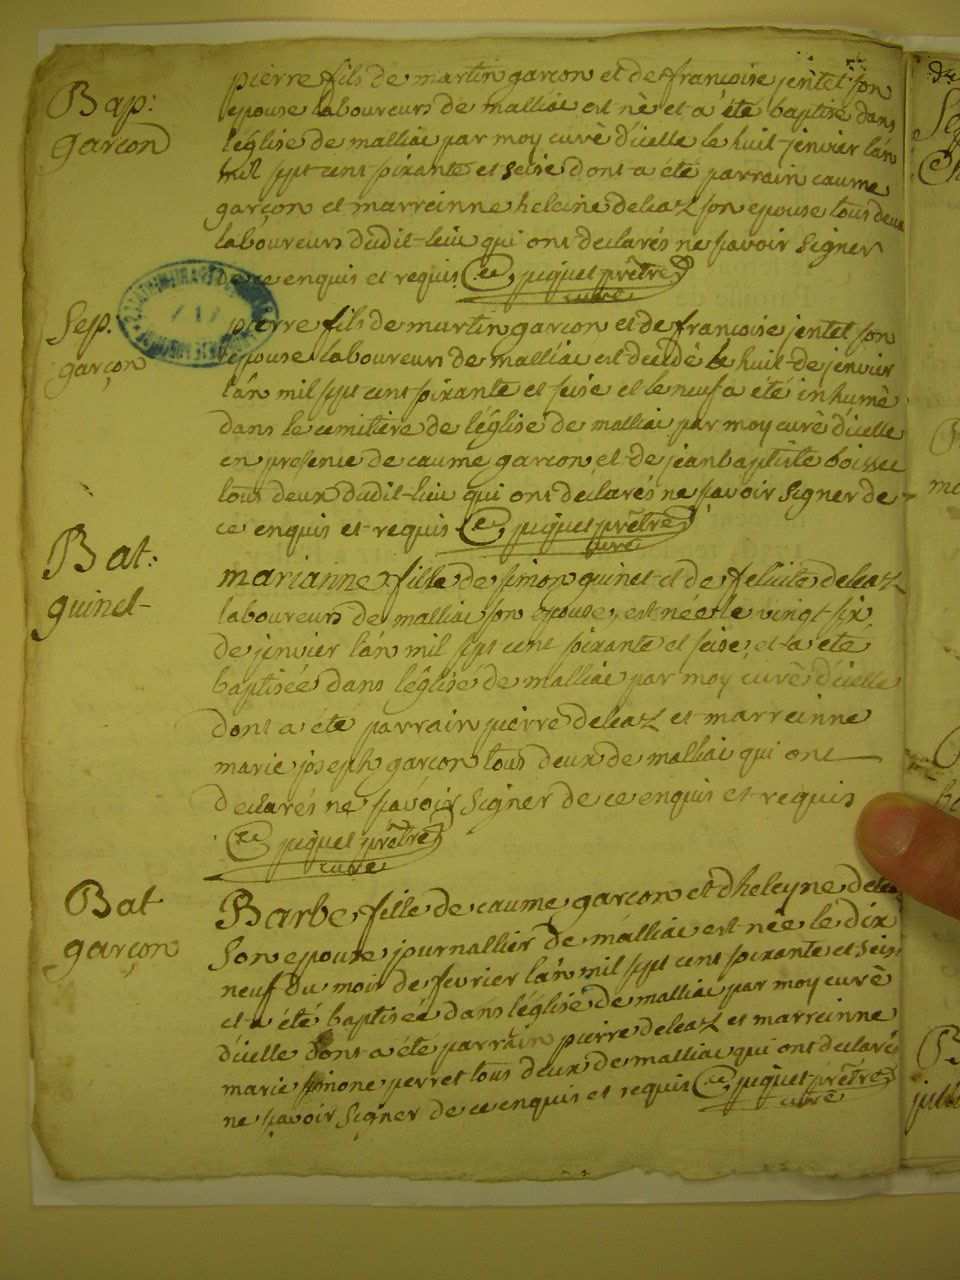 Bap:
garcon
pierre fils de martin garcon et de françoise jentet son
epouse laboureurs de malliac est nè et a été baptisé dans
l'église de malliac par moy curè d'icelle le huit jenvier l'an
mil sept cent soixante et seise dont a été parrain caume
garçon et marreinne heleine deleaz son epouse tous deux
laboureurs dudit lieu qui ont declarés ne savoir signer
de ce enquis et requis piquet prêtre
curè
Sep.
garçon
pierre fils de martin garcon et de françoise jentet son
epouse laboureurs de malliac est decedè le huit de jenvier
l'an mil sept cent soixante et seise et le neuf a été inhumè
dans le cemitiere de l'église de malliac par moy curè d'icelle
en presence de caume garcon et de jean baptiste boisset
tous deux dudit lieu qui ont declarés ne savoir signer de
ce enquis et requis piquet prêtre
curè
Bat:
guinet
marianne fille de simon guinet et de felicite deleaz
laboureurs de malliac son epouse, est née le vingt six
de jenvier l'an mil sept cent soixante et seise et a été
baptisée dans l'église de malliac par moy curè d'icelle
dont a été parrain pierre deleaz et marreinne
marie joseph garcon tous deux de malliac qui ont
declarés ne savoir signer de ce enquis et requis
piquet prêtre
curè
Bat
garçon
Barbe fille de caume garcon et d'heleyne deleaz
son epouse journallier de malliac est nèe le dix
neuf du mois de fevrier l'an mil sept cent soixante et seis
et a été baptisee dans l'église de malliac par moy curè
d'icelle dont a été parrain pierre deleaz et marreinne
marie simone perret tous deux de malliac qui ont declarés
ne savoir signer de ce enquis et requis piquet prêtre
curè